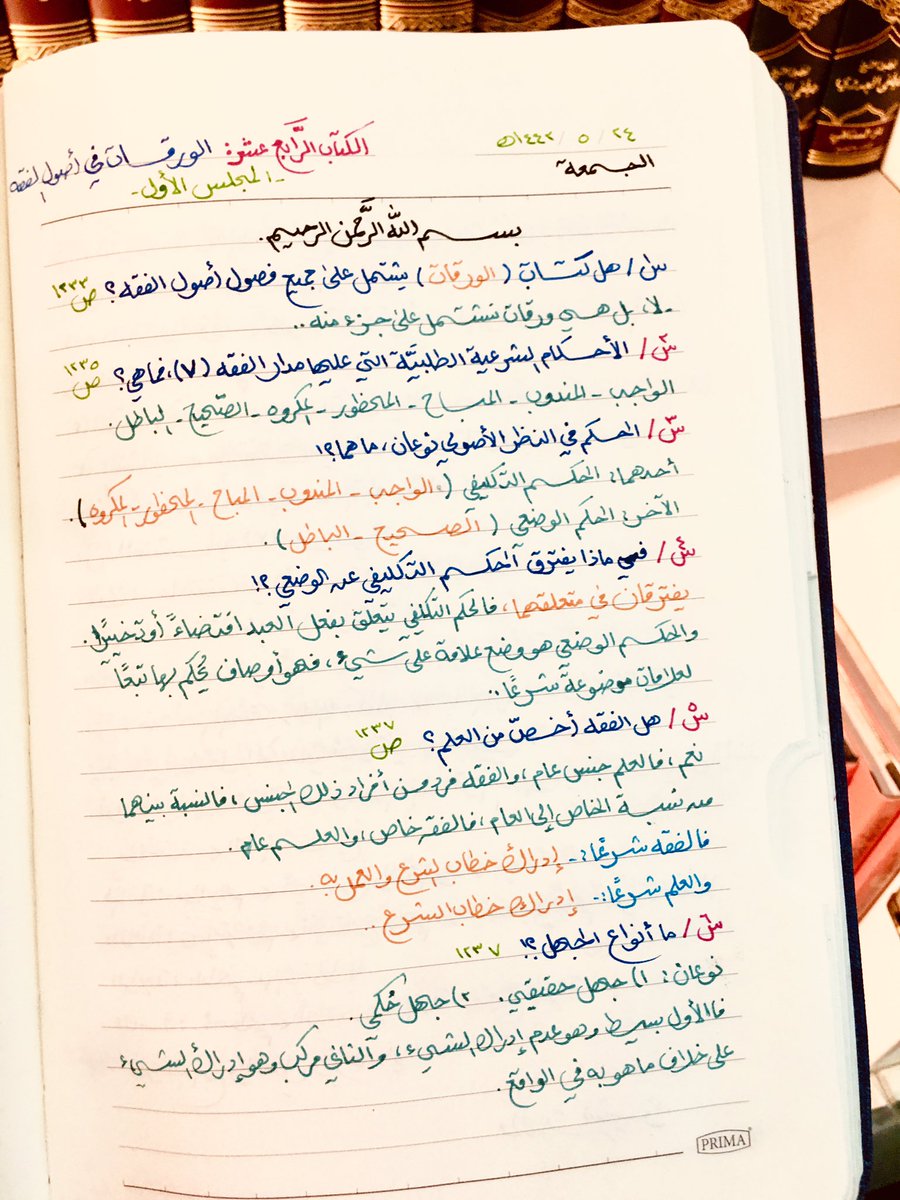 ٢٤ / ٥ / ١٤٤٢هـ
الجمعة
الكتاب الرَّابع عشر: الورقات في أصول الفقه
- المجلس الأول -
بسم الله الرَّحمن الرحيم.
س١/ هل كتاب (الورقات) يشتمل على جميع فصول أصول الفقه؟ ص ١٢٣٣
- لا، بل هي ورقات تشتمل على جزء منه..
س٢/ الأحكام الشرعية الطلبيَّة التي عليها مدار الفقه (٧)، فما هي؟ ص ١٢٣٥
الواجب - المندوب - المباح - المحظور - المكروه - الصَّحيح - الباطل.
س٣/ الحكم في النظر الأصولي نوعان، ما هما؟!
أحدهما: الحكم التَّكليفي (الواجب - المندوب - المباح - المحظور - المكروه).
الآخر: الحكم الوضعي (الصحيح - الباطل).
س٤/ في ماذا يفترق الحكم التَّكليفي عن الوضعي؟!
يفترقان في متعلقهما، فالحكم التكليفي يتعلَّق بفعل العبد اقتضاءً أو تخييرًا.
والحكم الوضعي هو وضع علامة على شيء، فهو أوصاف يُحكم بها تبعًا
لعلامات موضوعة شرعًا..
س٥/ هل الفقه أخصّ من العلم؟ ص ١٢٣٧
نعم، فالعلم جنس عام، والفقه فرد من أفراد ذلك الجنس، فالنسبة بينهما
من نسبة الخاص إلى العام، فالفقه خاص، والعلم عام.
فالفقه شرعًا:- إدراك خطاب الشرع والعمل به.
والعلم شرعًا:- إدراك خطاب الشرع..
س٦/ ما أنواع الجهل؟! ١٢٣٧
نوعان: ١) جهل حقيقي. ٢) جهل حُكمي.
فالأول بسيط وهو عدم إدراك الشيء، والثاني مركب وهو إدراك الشيء
على خلاف ما هو به في الواقع.
PRIMA